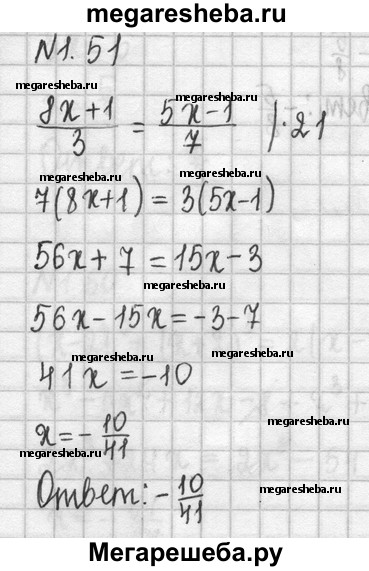 megaresheba.ru
N1. 51
megaresheba.ru megaresheba.ru
(8x+1)/3 = (5x-1)/7 /·21
megaresheba.ru megaresheba.ru
7(8x+1) = 3(5x-1)
56x+7 = 15x-3
megaresheba.ru
56x-15x=-3-7
megaresheba.ru megaresheba.ru
41x = -10
x = -10/41
megaresheba.ru
Ответ: -10/41
megaresheba.ru
Мегарешеба.ру